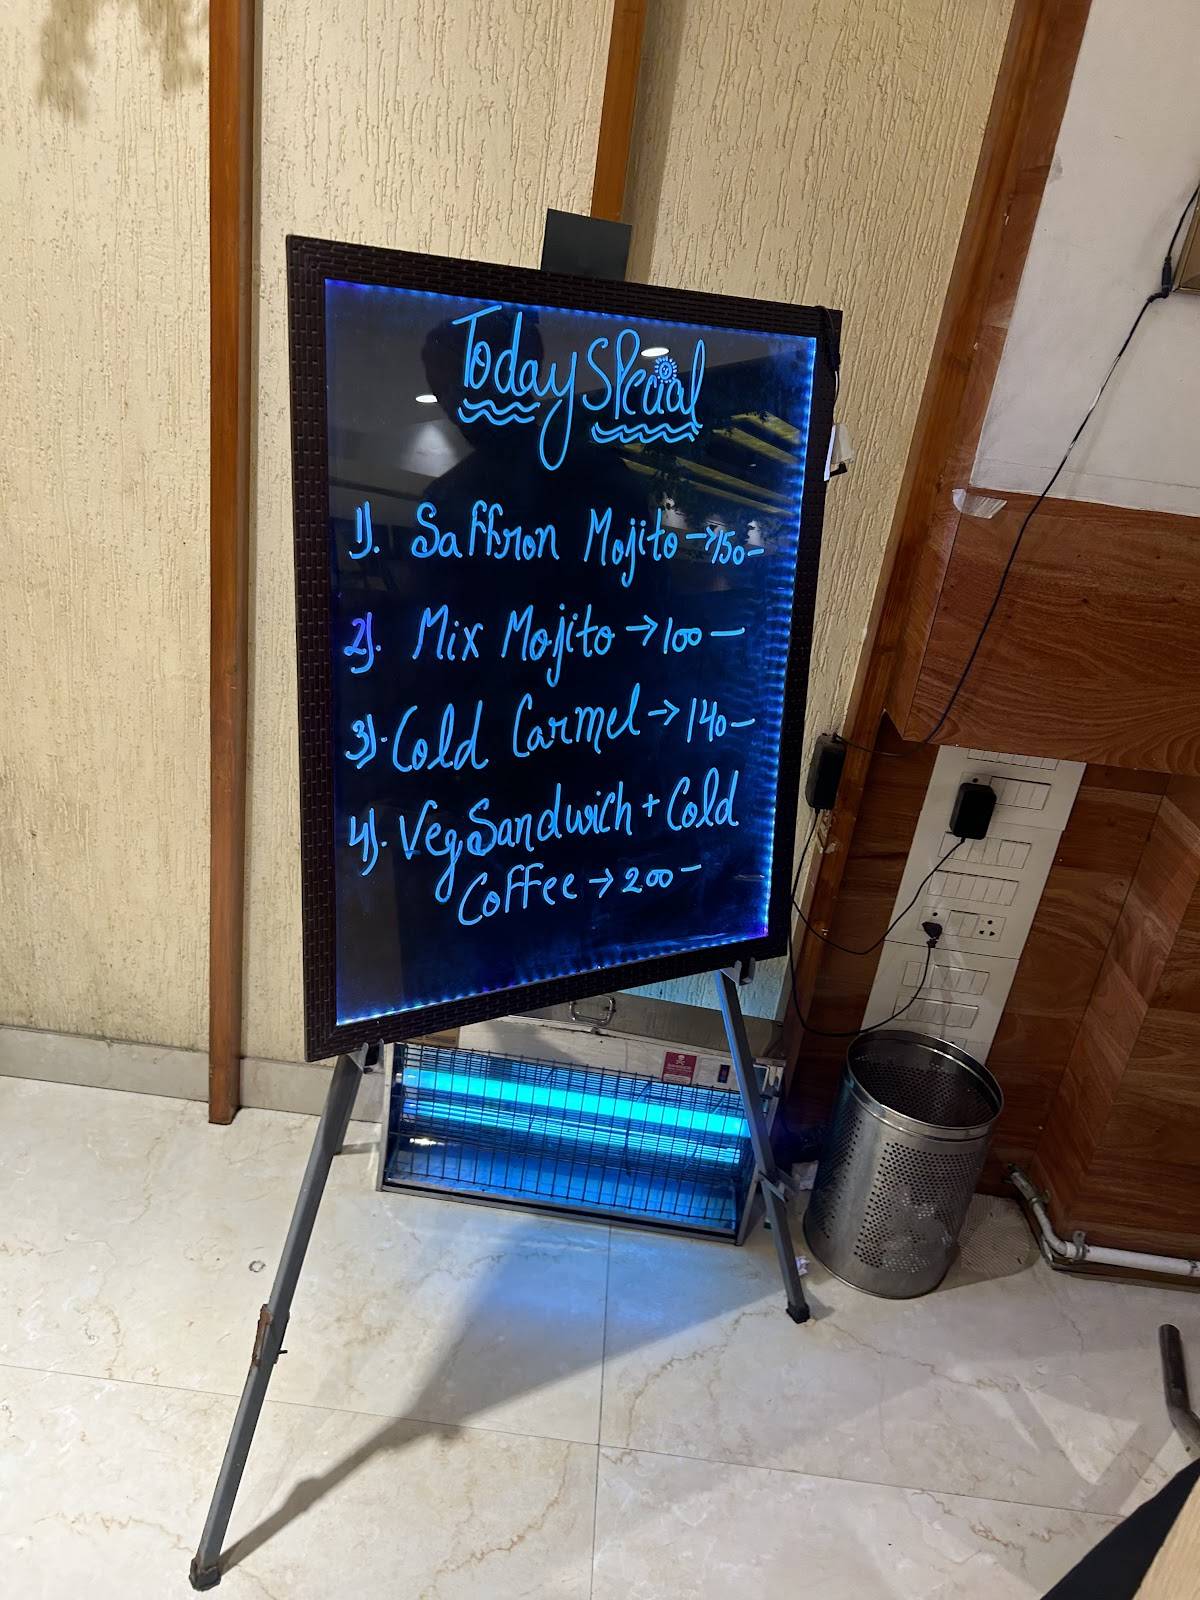 Today Special
1). Saffron Mojito → 150 —
2). Mix Mojito → 100 —
3). Cold Carmel → 140 —
4). Veg Sandwich + Cold
Coffee → 200 —